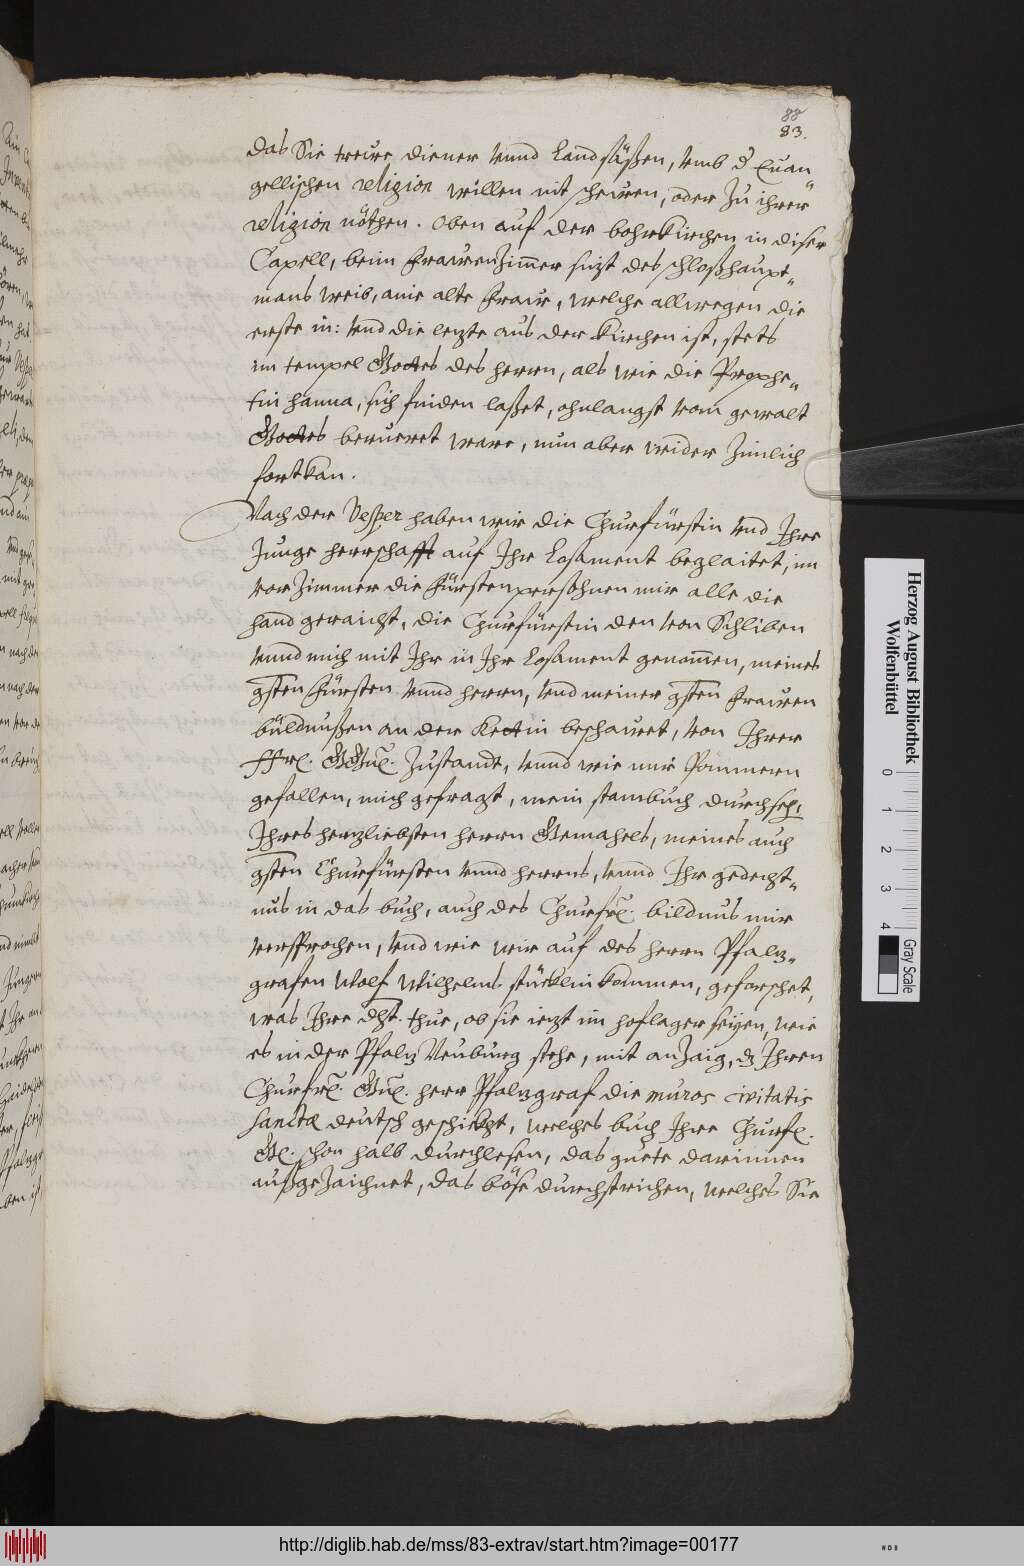 88
83.
das Sie treüe diener vnnd Landsäßen, vmb d Euan
gelischen religion willen nit scheüen, oder zu ihrer
religion nöthen. Oben auf der bohrkirchen in diser
Capell, beim Frawenzimmer sizt des schloßhaupt-
mans weib, aine alte Fraw, welche allwegen die
erste in: vnd die lezte aus der kirchen ist, stets
im tempel Gottes des herrn, als wie die Prophe-
tin Hanna, sich finden laßet, ohnlangst vom gewalt
Gottes berueret ware, nun aber wider zimlich
fortkan.
Nach der Vesper haben wir die Churfürstin vnd Ihre
Junge herrschafft auf Ihr Losament beglaitet, im
vorzimmer die Fürstenpersohnen mir alle die
hand geraicht, die Churfürstin den von Schliben
vnnd mich mit Ihr in Ihr Losament genommen, meines
gsten Fürsten vnnd herrn, vnd meiner gsten Frawen
büldnußen an der Kettin beschauet, von Ihrer
FFrl. GGnl. Zustandt, vnnd wie mir Pommern
gefallen, mich gefragt, mein stambuch durchseh,
Ihres herzliebsten herrn Gemahels, meines auch
gsten Churfürsten vnnd herrns, vnnd Ihr gedecht-
nus in das buch, auch des Churfrl. bildnus mir
versprochen, vnd wie wir auf des herrn Pfalz-
grafen Wolf Wilhelms stücklin kommen, geforschet,
was Ihre dht. thue, ob sie iezt im hoflager seyen, wie
es in der Pfalz Neuburg stehe, mit anzaig, dz Ihren
Churfrl. Gnl. herr Pfalzgraf die muros civitatis
sanctæ deutsch geschickht, welches buch Ihre Churfl.
Gl. schon halb durchlesen, das guete darinnen
außgezaichnet, das böse durchstrichen, welches Sie
Herzog August Bibliothek
Wolfenbüttel
0 1 2 3 4
Gray Scale
http://diglib.hab.de/mss/83-extrav/start.htm?image=00177